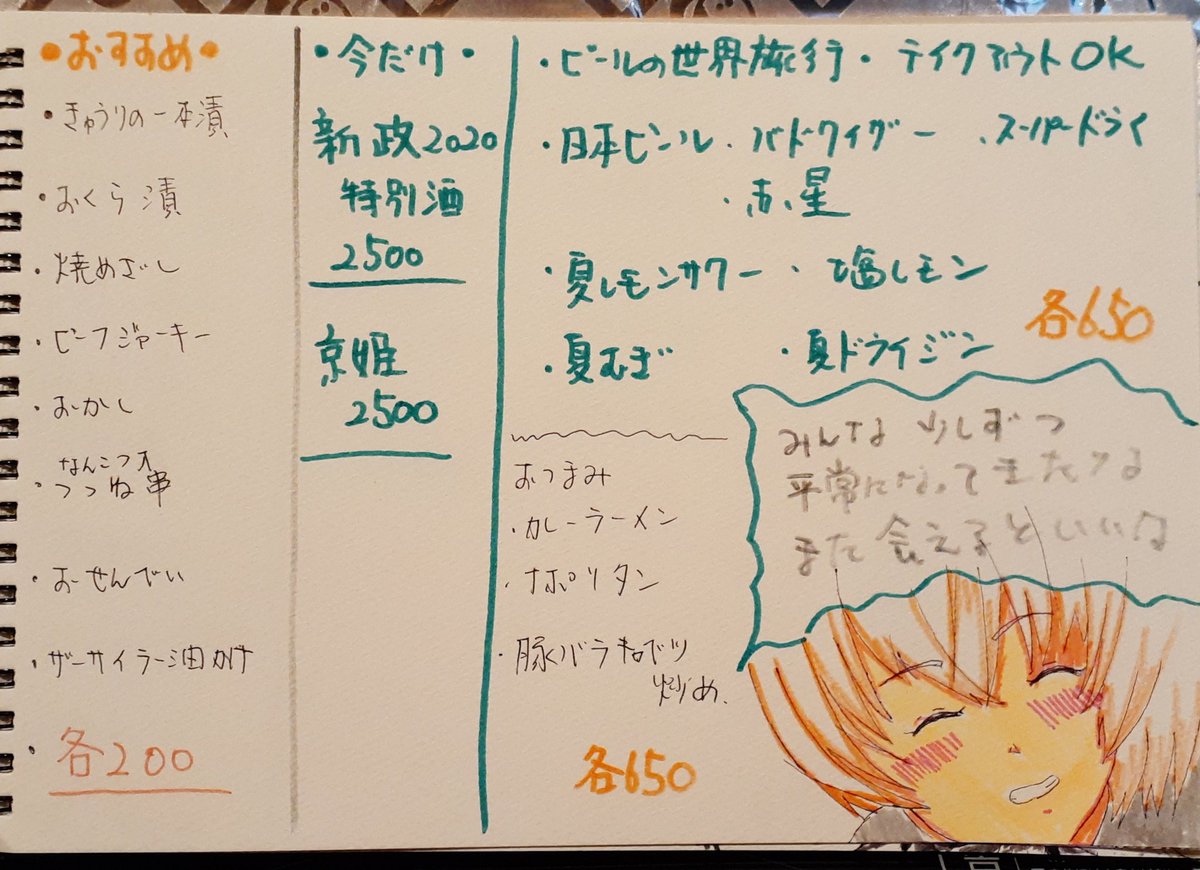 •おすすめ•
•きゅうりの一本漬
•おくら漬
•焼めざし
•ビーフジャーキー
•おかし
なんこつ入
•つつね串
•おせんべい
•ザーサイラー油かけ
•各200
•今だけ•
新政2020
特別酒
2500
京姫
2500
•ビールの世界旅行• テイクアウトOK
•日本ビール •バドワイザー •スーパードライ
•赤星
•夏レモンサワー •塩レモン
各650
•夏むぎ •夏ドライジン
みんな少しずつ
平常になってきたける
また会えるといいな
おつまみ
•カレーラーメン
•ナポリタン
•豚バラキャベツ
炒め.
各650